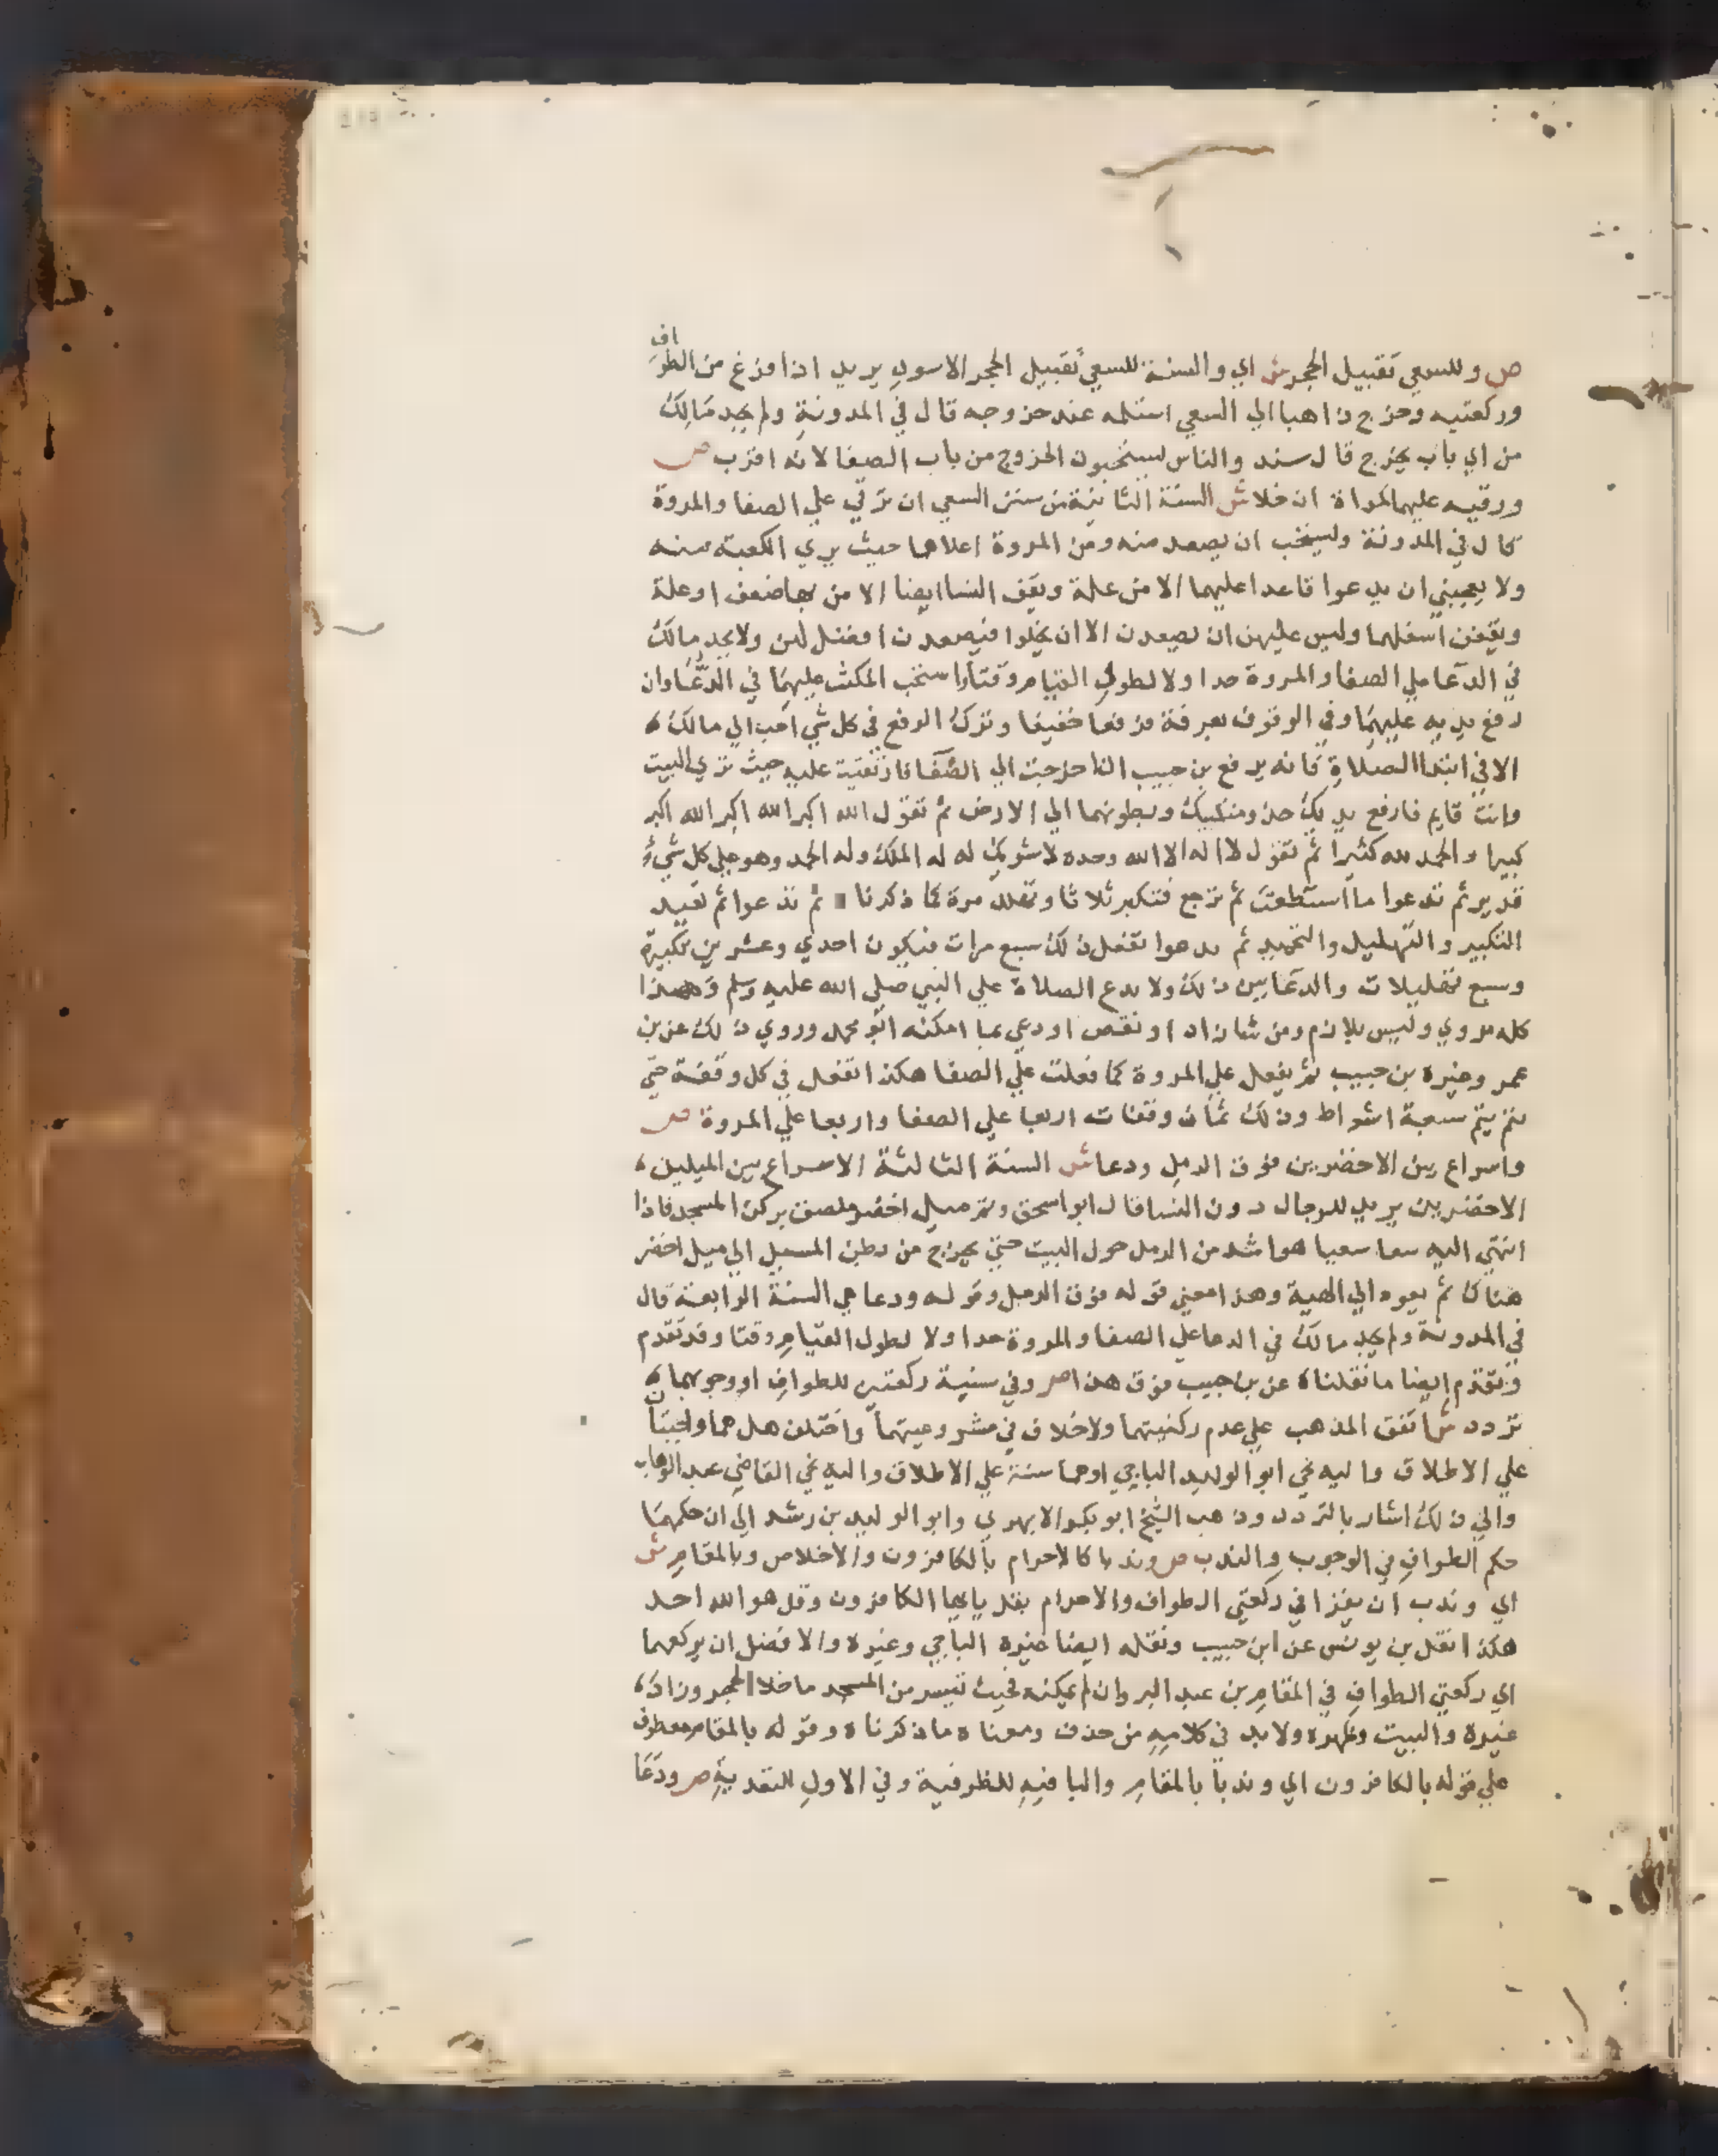 ص وللسعي تقبيل الحجر ش اي والسنة للسعي تقبيل الحجر الاسود يريد اذا فرغ من الطواف
وركعتيه وخرج ذاهبا الي السعي استلمه عند خروجه قال في المدونة ولم يحد مالك
من اي باب يخرج قال سند والناس يستحبون الخروج من باب الصفا لانه اقرب ص
ورقيه عليهما كمراة ان خلا ش السنة الثانية من سنن السعي ان ترقي علي الصفا والمروة
قال في المدونة ويستحب ان يصعد منه ومن المروة اعلاها حيث يري الكعبة منه
ولا يعجبني ان يدعوا قاعدا عليهما الا من علة ويقف النسا ايضا الا من بها ضعف او علة
ويقفن اسفلهما وليس عليهن ان يصعدن الا ان يخلوا فيصعدن افضل لهن ولا يحد مالك
في الدعا علي الصفا والمروة حدا ولا لطول القيام وقتا واستحب المكث عليهما في الدعا وان
رفع يديه عليهما وفي الوقوف بعرفة فرفعا خفيفا وترك الرفع في كل شي احب الي مالك
الا في ابتدا الصلاة فانه يرفع بن حبيب اذا خرجت الي الصفا فارتقيت عليه حيث تري البيت
وانت قايم فارفع يديك حذو منكبيك وبطونهما الي الارض ثم تقول الله اكبر الله اكبر الله اكبر
كبيرا والحمد لله كثيرا ثم تقول لا اله الا الله وحده لا شريك له له الملك وله الحمد وهو علي كل شيء
قدير ثم تدعوا ما استطعت ثم ترجع فتكبر ثلاثا وتهلل مرة كما ذكرنا ثم تدعوا ثم تعيد
التكبير والتهليل والتحميد ثم تدعوا تفعل ذلك سبع مرات فيكون احدي وعشرين تكبيرة
وسبع تهليلات والدعا بين ذلك ولا يدع الصلاة علي النبي صلي الله عليه وسلم وهذا
كله مروي وليس بلازم ومن شا زاد او نقص او دعي بما امكنه ابو محمد وروي ذلك عن بن
عمر وغيره بن حبيب ثم يفعل علي المروة كما فعلت علي الصفا هكذا تفعل في كل وقفة حتي
يتم سبعة اشواط وذلك ثمان وقفات اربعا علي الصفا واربعا علي المروة ص
واسراع بين الاخضرين فوق الرمل ودعا ش السنة الثالثة الاسراع بين الميلين
الاخضرين يريد للرجال دون النسا قال ابو اسحق وثم ميل اخضر ملصق بركن المسجد فاذا
انتهي اليه سعا سعيا هو اشد من الرمل حول البيت حتي يخرج من بطن المسيل الي ميل اخضر
هناك ثم يعود الي الهية وهذا معني قوله فوق الرمل وقوله ودعا هي السنة الرابعة قال
في المدونة ولم يحد مالك في الدعا علي الصفا والمروة حدا ولا لطول القيام وقتا وقد تقدم
وتقدم ايضا ما نقلناه عن بن حبيب فوق هذا ص وفي سنية ركعتين للطواف او وجوبهما
تردد ش اتفق المذهب علي عدم ركنيتهما ولا خلاف في مشروعيتهما واختلف هل هما واجبتان
علي الاطلاق واليه نحي ابو الوليد الباجي او هما سنة علي الاطلاق واليه نحي القاضي عبد الوهاب
والي ذلك اشار بالتردد وذهب الشيخ ابو بكر الابهري وابو الوليد بن رشد الي ان حكمهما
حكم الطواف في الوجوب والندب ص وندبا كالاحرام بالكافرون والاخلاص وبالمقام ش
اي وندب ان يقرا في ركعتي الطواف والاحرام بقل يا ايها الكافرون وقل هو الله احد
هكذا نقل بن يونس عن ابن حبيب ونقله ايضا غيره الباجي وغيره والافضل ان يركعهما
اي ركعتي الطواف في المقام بن عبد البر وان لم يمكنه فحيث تيسر من المسجد ما خلا الحجر وزاد
غيره والبيت وظهره ولا بد في كلامه من حذف ومعناه ما ذكرناه وقوله بالمقام معطوف
علي قوله بالكافرون اي وندبا بالمقام والبا فيه للظرفية وفي الاول للتعدية ص ودعا